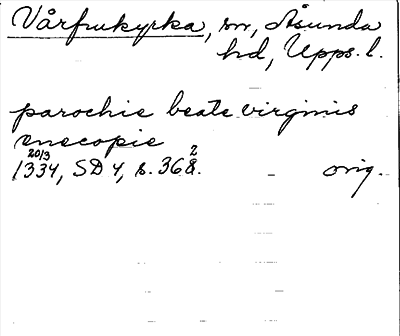 Vårfrukyrka, sn, Åsunda
hd, Upps. l.
parochie beate virginis
enecopie
20/3
1334, SD 4, s. 368. orig.